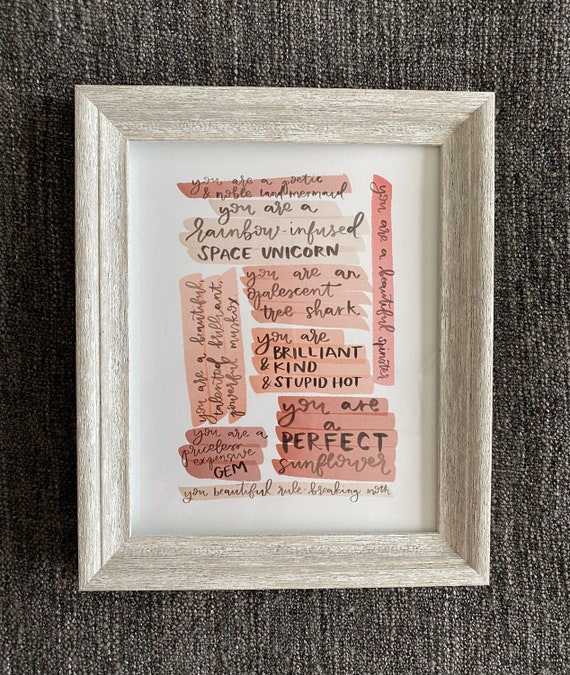 you are a poetic
& noble land mermaid
you are a
rainbow-infused
SPACE UNICORN
you are a beautiful spinster
you are an
opalescent
tree shark
you are a beautiful,
talented, brilliant,
powerful muskox
you are
BRILLIANT
& KIND
& STUPID HOT
you are
a
PERFECT
sunflower
you are a
priceless
expensive
GEM
you beautiful rule-breaking moth